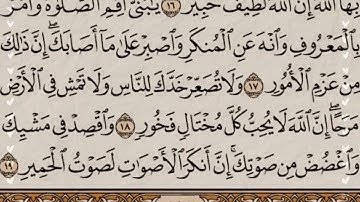 بِهَا ٱللَّهُ إِنَّ ٱللَّهَ لَطِيفٌ خَبِيرٌ ١٦ يَٰبُنَيَّ أَقِمِ ٱلصَّلَوٰةَ وَأْمُرْ
بِٱلْمَعْرُوفِ وَٱنْهَ عَنِ ٱلْمُنكَرِ وَٱصْبِرْ عَلَىٰ مَآ أَصَابَكَ ۖ إِنَّ ذَٰلِكَ
مِنْ عَزْمِ ٱلْأُمُورِ ١٧ وَلَا تُصَعِّرْ خَدَّكَ لِلنَّاسِ وَلَا تَمْشِ فِى ٱلْأَرْضِ
مَرَحًا ۖ إِنَّ ٱللَّهَ لَا يُحِبُّ كُلَّ مُخْتَالٍ فَخُورٍ ١٨ وَٱقْصِدْ فِى مَشْيِكَ
وَٱغْضُضْ مِن صَوْتِكَ ۚ إِنَّ أَنكَرَ ٱلْأَصْوَٰتِ لَصَوْتُ ٱلْحَمِيرِ ١٩